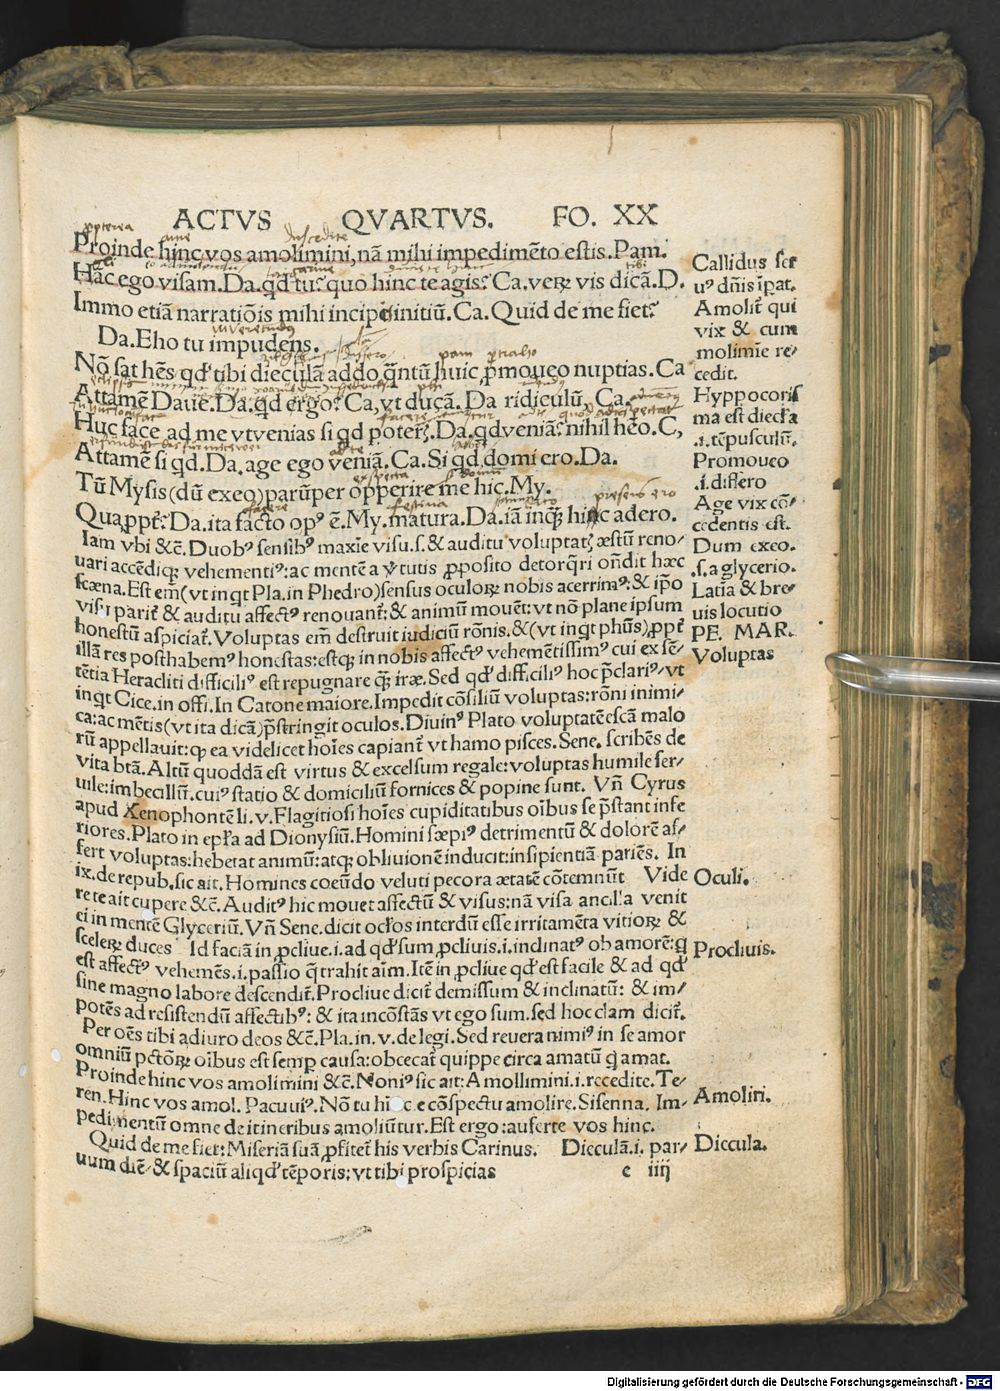 ACTVS QVARTVS. FO. XX
Proinde hinc vos amolimini, nã mihi impedimẽto estis. Pam.
Hãc ego visam. Da. qd tu? quo hinc te agis? Ca. verꝝ vis dicã. D.
Immo etiã narratiõis mihi incipit initiũ. Ca. Quid de me fiet?
Da. Eho tu impudens.
Nõ sat hẽs qđ tibi dieculã addo, q̃ntũ huic ꝓmoueo nuptias. Ca
Attamẽ Daue. Da. qd ergo? Ca, vt ducã. Da ridiculũ. Ca.
Huc face ad me vt venias si qd poteris. Da. qd veniã? nihil heo. C,
Attamẽ si qd. Da. age ego veniã. Ca. Si qd domi ero. Da.
Tũ Mysis (dũ exeo) parũper opperire me hic. My.
Quappter? Da. ita facto opꝰ ẽ. My. matura. Da. iã inq̃ hinc adero.
Iam vbi &c̃. Duobꝰ sensibꝰ maxie visu. s. & auditu voluptatꝭ æstũ reno⸗
uari accẽdiqꝫ vehementiꝰ: ac mentẽ a v̓tutis ꝓposito detorq̃ri oñdit hæc
scæna. Est em̃ (vt inqt Pla. in Phedro) sensus oculoꝝ nobis acerrimꝰ: & ip̃o
visu parit̃ & auditu affectꝰ renouant̃: & animũ mouẽt: vt nõ plane ipsum
honestũ aspiciat̃. Voluptas em̃ destruit iudiciũ rõnis. & (vt inqt phũs) ꝓpt̃
illã res posthabemꝰ honestas: estqꝫ in nobis affectꝰ vehemẽtissimꝰ cui ex sẽ⸗
tẽtia Heracliti difficiliꝰ est repugnare q̃ꝫ iræ. Sed qđ difficiliꝰ hoc p̃clariꝰ, vt
inqt Cice. in offi. In Catone maiore. Impedit cõsiliũ voluptas: rõni inimi⸗
ca: ac mẽtis (vt ita dicã) p̃stringit oculos. Diuinꝰ Plato voluptatẽ escã malo
rũ appellauit: qꝫ ea videlicet hoĩes capiant̃ vt hamo pisces. Sene. scribẽs de
vita btã. Altũ quoddã est virtus & excelsum regale: voluptas humile ser⸗
uile: imbecillũ. cuiꝰ statio & domiciliũ fornices & popine sunt. Vñ Cyrus
apud Xenophontẽ li. v. Flagitiosi hoĩes cupiditatibus oĩbus se p̃stant infe
riores. Plato in epĩa ad Dionysiũ. Homini sæpiꝰ detrimentũ & dolorẽ af⸗
fert voluptas: hebetat animũ: atqꝫ obliuionẽ inducit: insipientiã pariẽs. In
ix. de repub. sic ait. Homines coeũdo veluti pecora ætatẽ cõtemnũt Vide
re te ait cupere &c̃. Auditꝰ hic mouet affectũ & visus: nã visa ancilla venit
ei in mentẽ Glyceriũ. Vñ Sene. dicit oclos interdũ esse irritamẽta vitioꝝ &
sceleꝝ duces Id faciã in ꝓcliue. i. ad qđ sum ꝓcliuis. i. inclinatꝰ ob amorẽ: q̃
est affectꝰ vehemẽs. i. passio q̃ trahit aĩm. Itẽ in ꝓcliue qđ est facile & ad qđ
sine magno labore descendit̃. Procliue dicit̃ demissum & inclinatũ: & im⸗
potẽs ad resistendũ affectibꝰ: & ita incõstãs vt ego sum. sed hoc clam dicit̃.
Per oẽs tibi adiuro deos &c̃. Pla. in. v. de legi. Sed reuera nimiꝰ in se amor
omniũ pctõꝝ oĩbus est semp causa: obcecat̃ quippe circa amatũ q̃ amat.
Proinde hinc vos amolimini &c̃. Noniꝰ sic ait: Amollimini. i. recedite. Te⸗
ren. Hinc vos amol. Pacuuiꝰ. Nõ tu hinc e cõspectu amolire. Sisenna. Im⸗
pedimentũ omne de itineribus amoliũtur. Est ergo: auferte vos hinc.
Quid de me fiet: Miseriã suã ꝓfitet̃ his verbis Carinus. Dieculã. i. par⸗
uum diẽ & spaciũ aliqđ tẽporis: vt tibi prospicias
e iiij
Callidus ser
uꝰ dñis ĩpat.
Amolit̃ qui
vix & cum
molimĩe re⸗
cedit.
Hyppocoris
ma est diecla
.i. tẽpusculũ.
Promoueo
.i. differo
Age vix cõ⸗
cedentis est.
Dum exeo.
.s. a glycerio.
Latiã & bre⸗
uis locutio
PE. MAR.
Voluptas
Oculi.
Procliuis.
Amoliri.
Diecula.
Digitalisierung gefördert durch die Deutsche Forschungsgemeinschaft - DFG